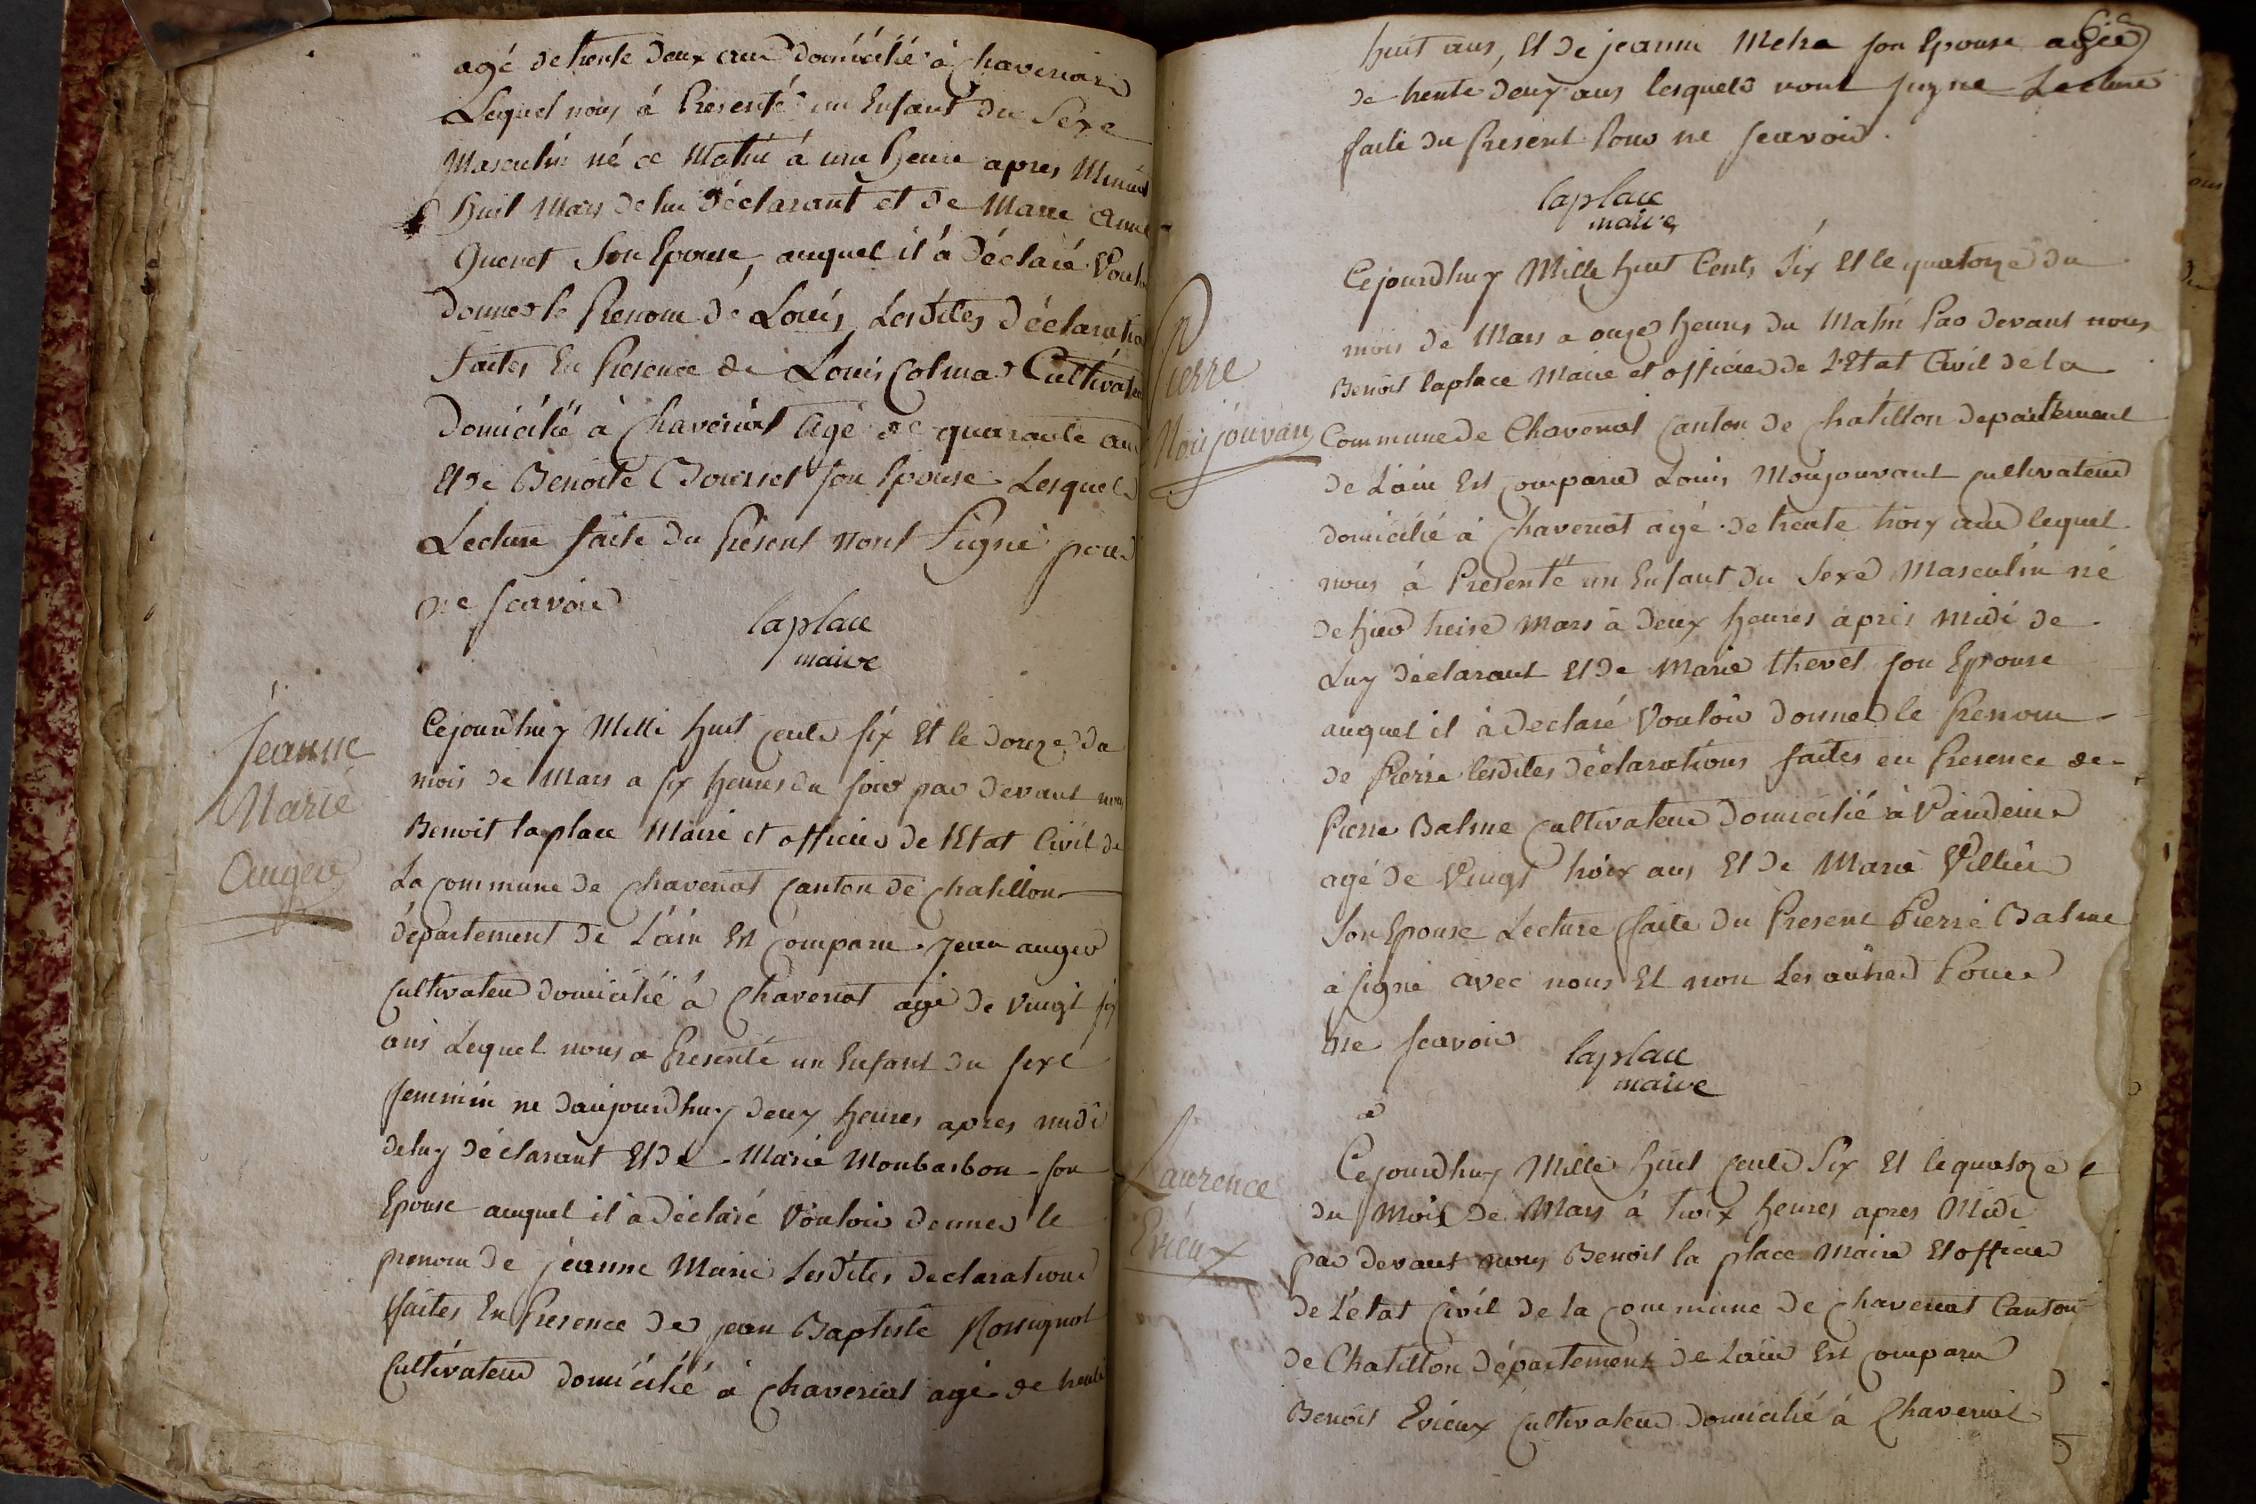 agé de trente deux ans domicilié à Chaveriat
Lequel nous à Presenté un Enfant du Sexe
Masculin né ce Matin à une heure apres Minuit
huit Mars de lui déclarant et de Marie Anne
Quenet Son Epouse, auquel il à déclaré Vouloir
donner le Prenom de Louis, Lesdites déclaration
faites En Presence de Louis Colmar Cultivateur
Domicilié à Chaveriat agé de quarante ans
Et de Benoite Son Epouse Lesquels
Lecture faite du Présent nont Signé pour
ne Scavoir
laplace
maire
Jeanne
Marie
Auger
Cejourdhuy Mille huit cents six Et le douze du
mois de Mars a six heures du soir par devant nous
Benoit laplace Maire et officier de lEtat Civil de
La commune de Chaveriat Canton de Chatillon
département de Lain Est Comparu Jean auger
Cultivateur domicilié à Chaveriat agé de vingt six
ans Lequel nous a Presenté un Enfant du sexe
feminin ne daujourdhuy deux heures apres midi
de luy déclarant Et de Marie Monbarbon son
Epouse auquel il à déclaré Vouloir donner le
prenom de jeanne Marie Lesdites declarations
faites En Presence de jean Baptiste Rossignol
Cultivateur domicilié à Chaveriat agé de trente
huit ans, Et de jeanne Metra son Epouse agée
de trente deux ans lesquels nont signe Lecture
faite du Present Pour ne scavoir.
laplace
maire
Pierre
Monjouvan
Cejourdhuy Mille huit Cents Six Et le quatorze du
mois de Mars a onze heures du Matin Par devant nous
Benoit laplace Maire et officier de L'Etat Civil de la
Commune de Chaveriat Canton de Chatillon departement
de Lain Est comparu Louis Monjouvant cultivateur
domicilié à Chaveriat agé de trente trois ans lequel
nous à Presenté un Enfant du Sexe Masculin né
de hier treise Mars à deux heures apris midi de
Luy déclarant Et de Marie thevet son Epouse
auquel il à declaré Vouloir donner le Prenom
de Pierre lesdites déclarations faites en Presence de
Pierre Balme cultivateur domicilié à Vandeins
agé de Vingt trois ans Et de Marie Villier
Son Epouse Lecture faite du Present Pierre Balme
a signé avec nous Et non Les autres Pour
ne scavoir
laplace
maire
Laurence
Evieux
Cejourdhuy Mille huit cents Six Et le quatorze
du Mois de Mars à trois heures apres Midi
par devant nous Benoit la place Maire Et officier
de L'état Civil de la commune de Chaveriat Canton
de Chatillon département de Lain Est comparu
Benoit Evieux Cultivateur domicilié à Chaveriat